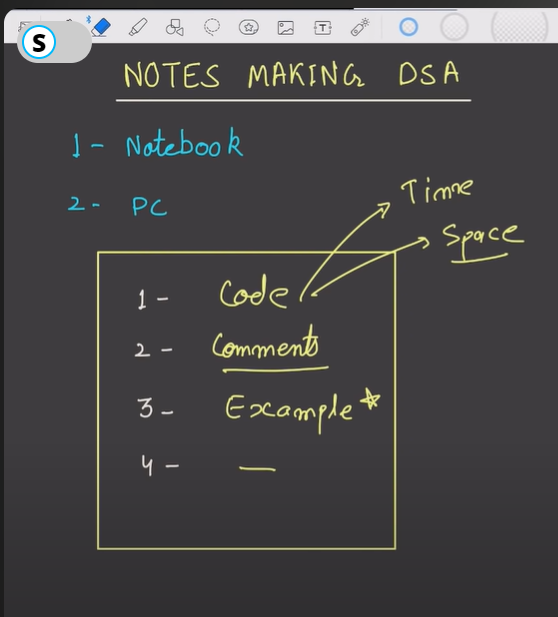 S
NOTES MAKING DSA
1- Notebook
2- PC
Time
Space
1- Code
2- Comments
3- Example
4-